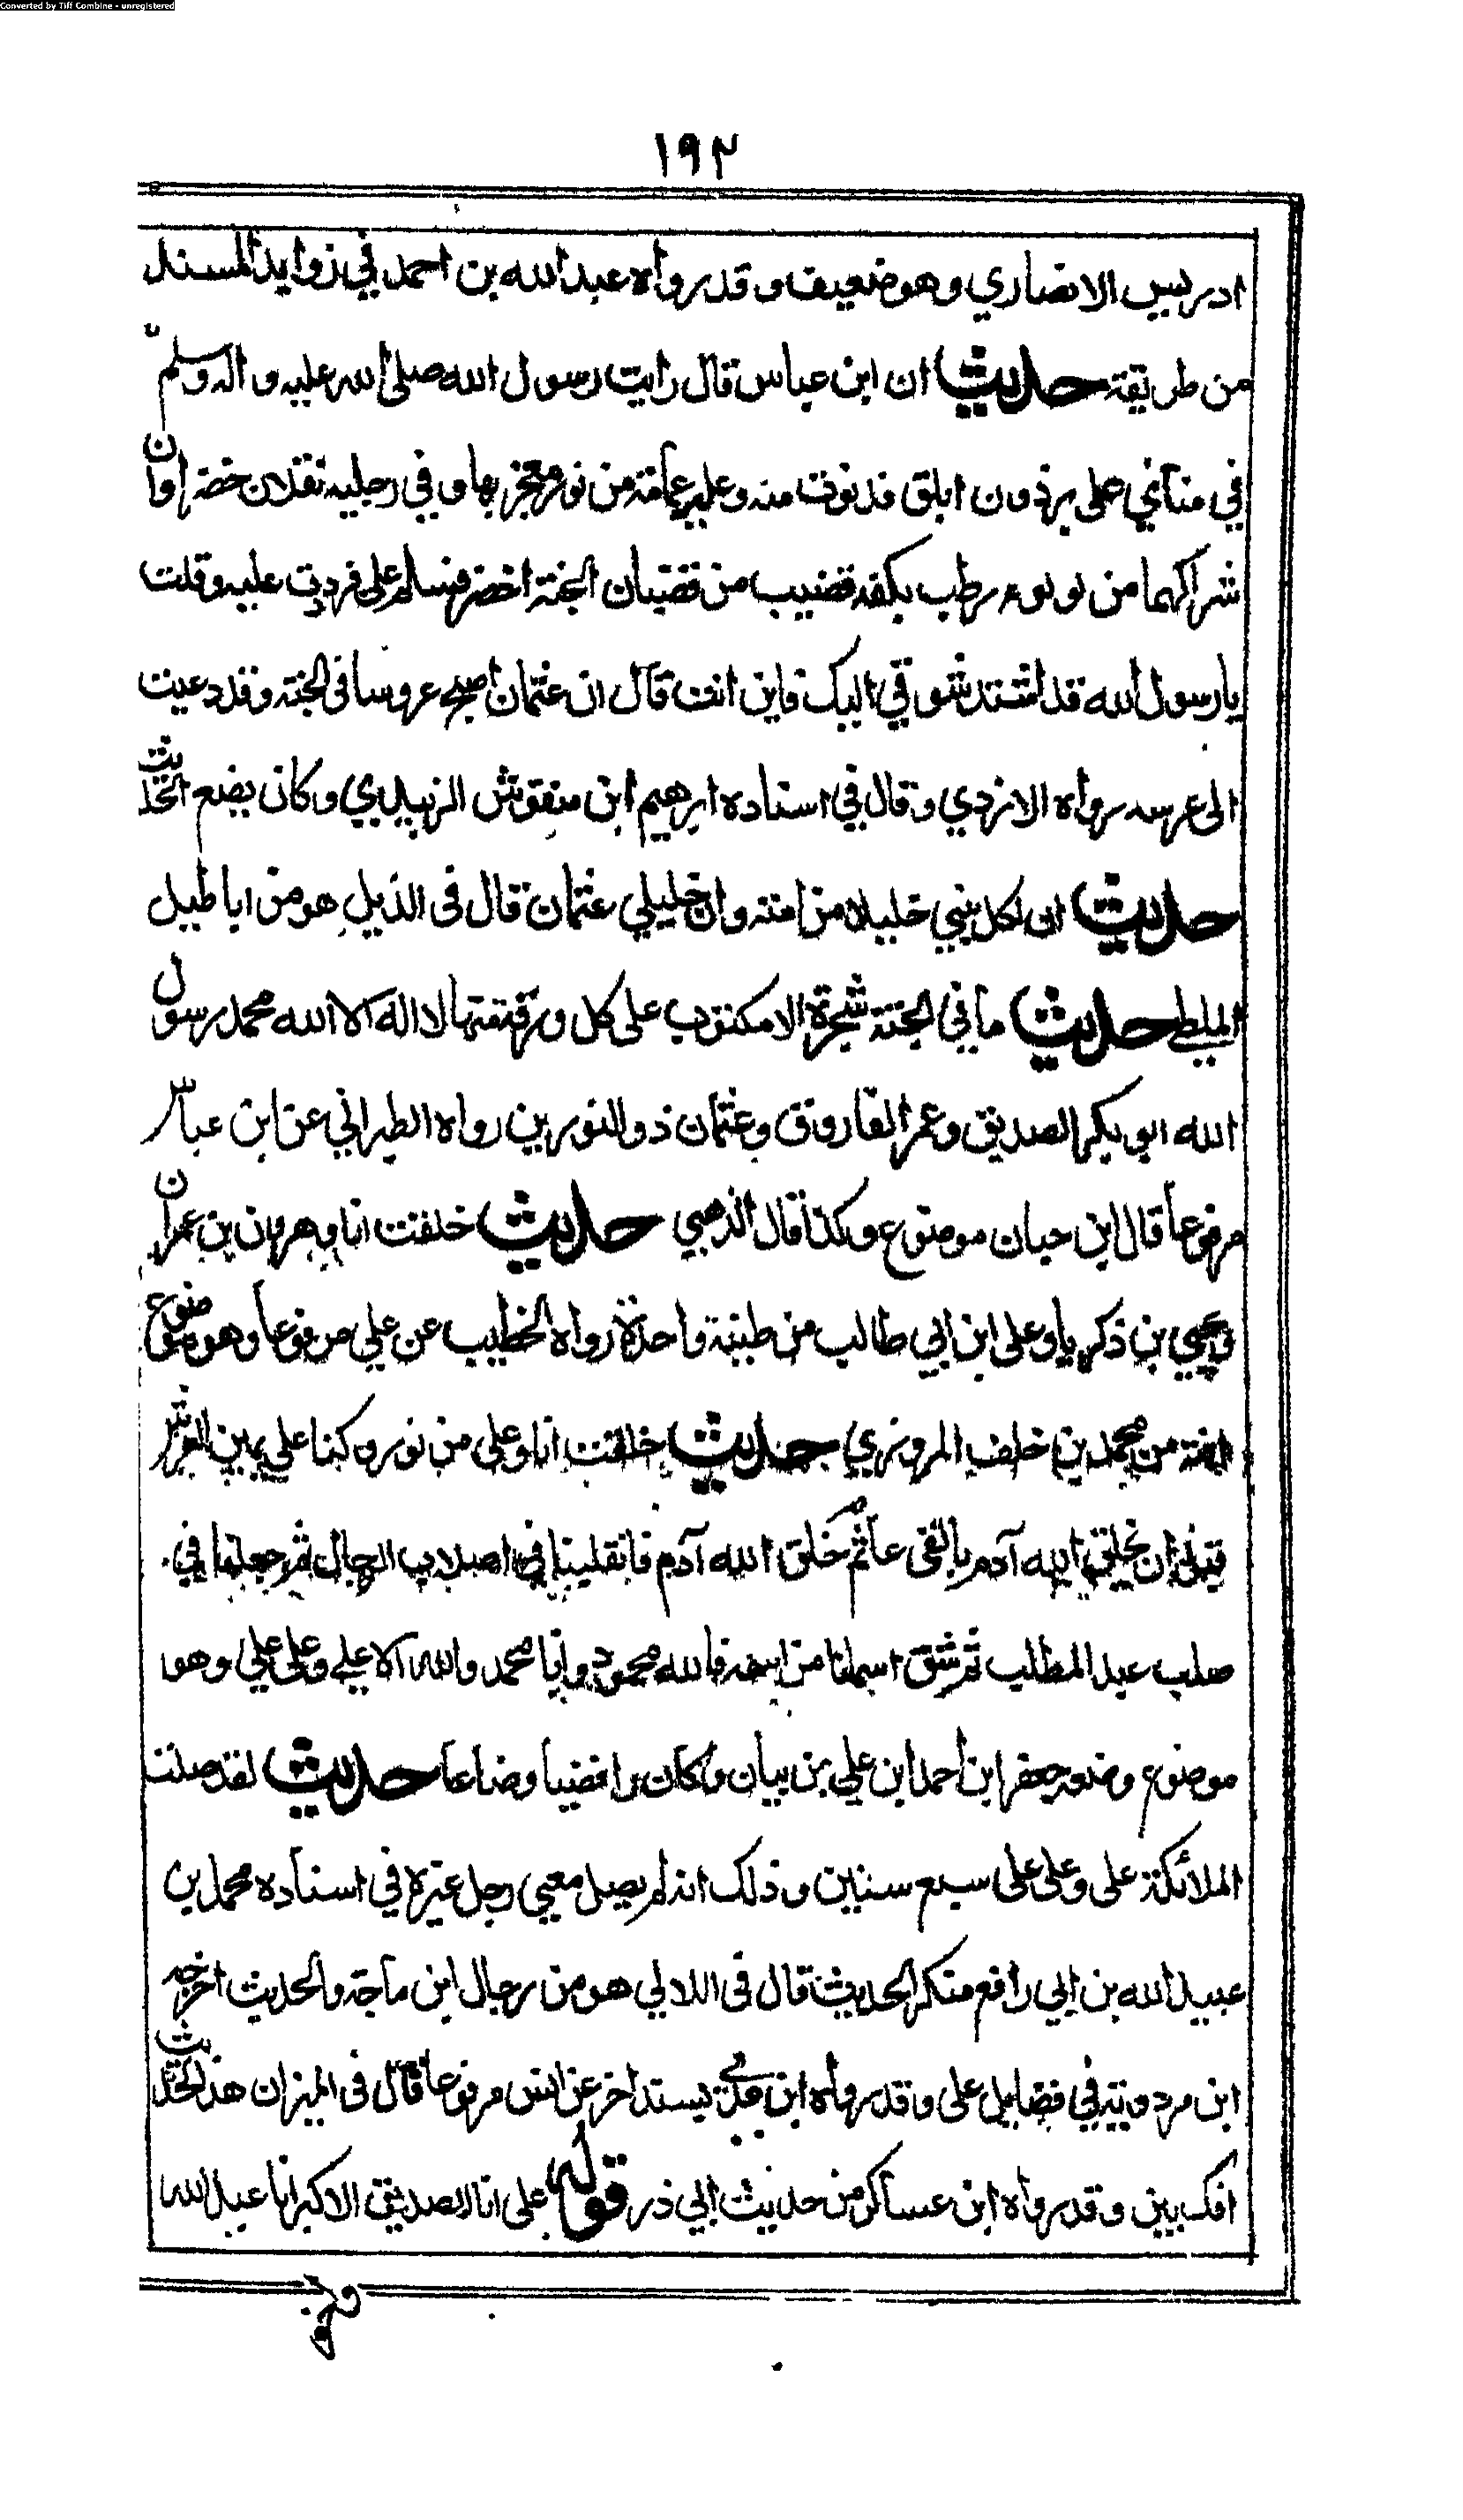 Converted by Tiff Combine - unregistered
١٩٢
ادريس الانصاري وهو ضعيف وقد رواه عبد الله بن احمد في زوايد المسند
من طريقة حديث ان ابن عباس قال رايت رسول الله صلى الله عليه واله وسلم
في منامي على برذون ابلق فدنوت منه وعليه عمامة من نور معتجر بها وفي رجليه نعلان خضراوان
شراكهما من لولوء رطب بكفه قضيب من قضبان الجنة اخضر فسلم على فرديت عليه وقلت
يا رسول الله قد اشتد شوقي اليك فاين انت قال ان عثمان اصبح عروسا في الجنة وقد دعيت
الى عرسه رواه الازدي وقال في اسناده ابرهيم ابن منقوش الزبيدي وكان يضع الحديث
حديث ان لكل نبي خليلا من امته وان خليلي عثمان قال في الذيل هو من اباطيل
الملطي حديث ما في الجنة شجرة الا مكتوب على كل ورقة منها لا اله الا الله محمد رسول
الله ابو بكر الصديق وعمر الفاروق وعثمان ذو النورين رواه الطبراني عن ابن عباس
مرفوعا قال ابن حبان موضوع وكذا قال الذهبي حديث خلقت انا وهرون بن عمران
ويحيى بن ذكريا وعلى ابن ابي طالب من طينة واحدة رواه الخطيب عن علي مرفوعا وهو موضوع
افته من محمد بن خلف المروزي حديث خلقت انا وعلى من نور وكنا على يمين العرش
قبل ان يخلق الله آدم بالفي عام ثم خلق الله آدم فانقلبنا في اصلاب الرجال ثم جعلنا في
صلب عبد المطلب ثم شق اسمانا من اسمه فالله محمود وانا محمد والله الاعلى وعلى علي وهو
موضوع وضعه جعفر ابن احمد ابن علي بن بيان وكان رافضيا وضاعا حديث لقد صلت
الملائكة على وعلى على سبع سنين وذلك انه لم يصل معي رجل غيره في اسناده محمد بن
عبيد الله بن ابي رافع منكر الحديث قال في اللالي هو من رجال ابن ماجة والحديث اخرجه
ابن مردويه في فضايل على وقد رواه ابن عدي بسند اخر عن انس مرفوعا قال في الميزان هذا الحديث
افك بين وقد رواه ابن عساكر من حديث ابي ذر قوله على انا الصديق الاكبر انا عبد الله